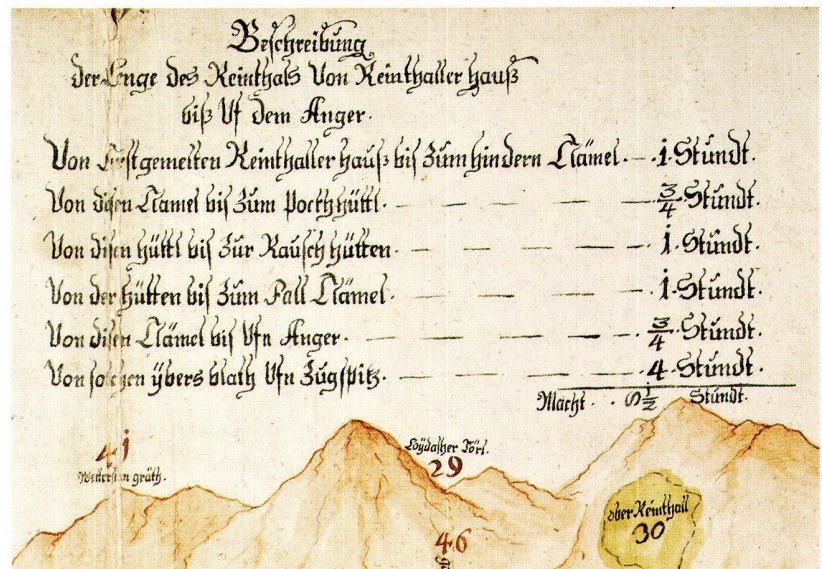 Beschreibung
der Enge des Reinthals Von Reinthaller hauß
biß Vf dem Anger.
Von Erstgemelten Reinthaller hauß bis Zum hindern Clämel. — 1 Stundt.
Von disen Clamel bis Zum Pockh hüttl. — 3/4 Stundt.
Von disen hüttl bis Zur Rausch hütten. — — — — 1 Stundt.
Von der hütten bis Zum Fall Clämel. — — — — 1 Stundt.
Von disen Clämel bis Vfn Anger. — — — — — 3/4 Stundt.
Von solchen ybers blath Vfn Zugspitz. — — — — — 4 Stundt.
Macht . . 8 1/2 Stundt.
Loÿdascher Törl.
41
29
Wetterstain gräth.
ober Reinthall
30
46